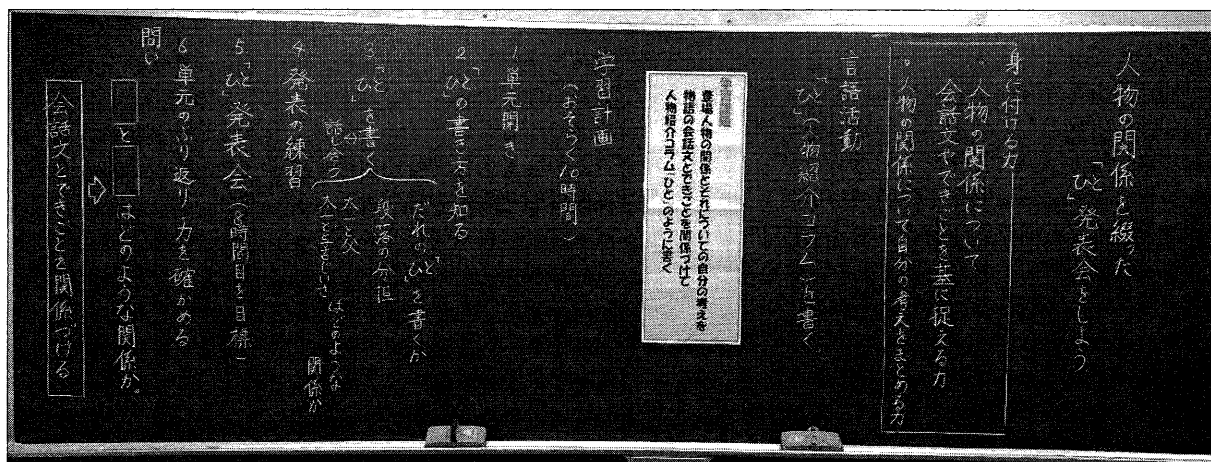 人物の関係を綴った
「ひと」発表会をしよう
身に付ける力
・人物の関係について
会話文やできごとを基に捉える力
・人物の関係について自分の考えをまとめる力
言語活動
「ひと」(人物紹介コラム)を書く
学習課題
登場人物の関係とそれについての自分の考えを
物語の会話文とできごとを関係づけて
人物紹介コラム「ひと」のように書く
学習計画
(おそらく10時間)
1 単元開き
2 「ひと」の書き方を知る
3 「ひと」を書く
話し合う
だれの「ひと」を書くか
段落の分担
太一と父
太一と与吉じいさ
はどのような
関係か
4 発表の練習
5 「ひと」発表会(8時間目を目標)
6 単元のふり返り・力を確かめる
問い
□と□はどのような関係か。
⇨
会話文とできごとを関係づける